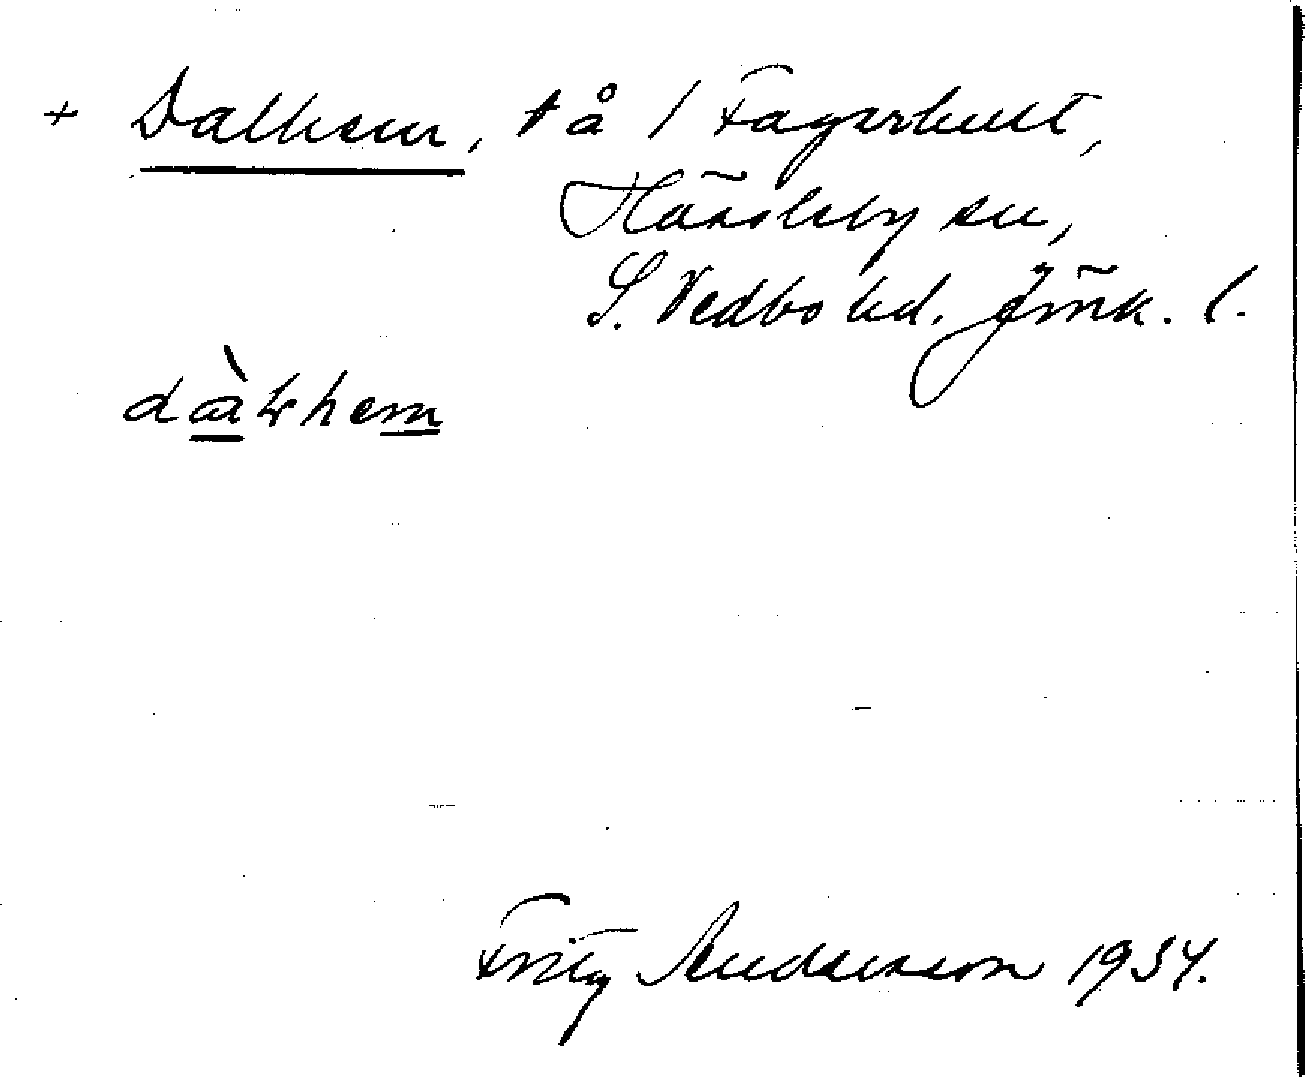 + Dalhem, tå / Fagerhult,
Hässleby sn,
S. Vedbo hd. Jönk. l.
dàlhem
Fritz Andersson 1934.